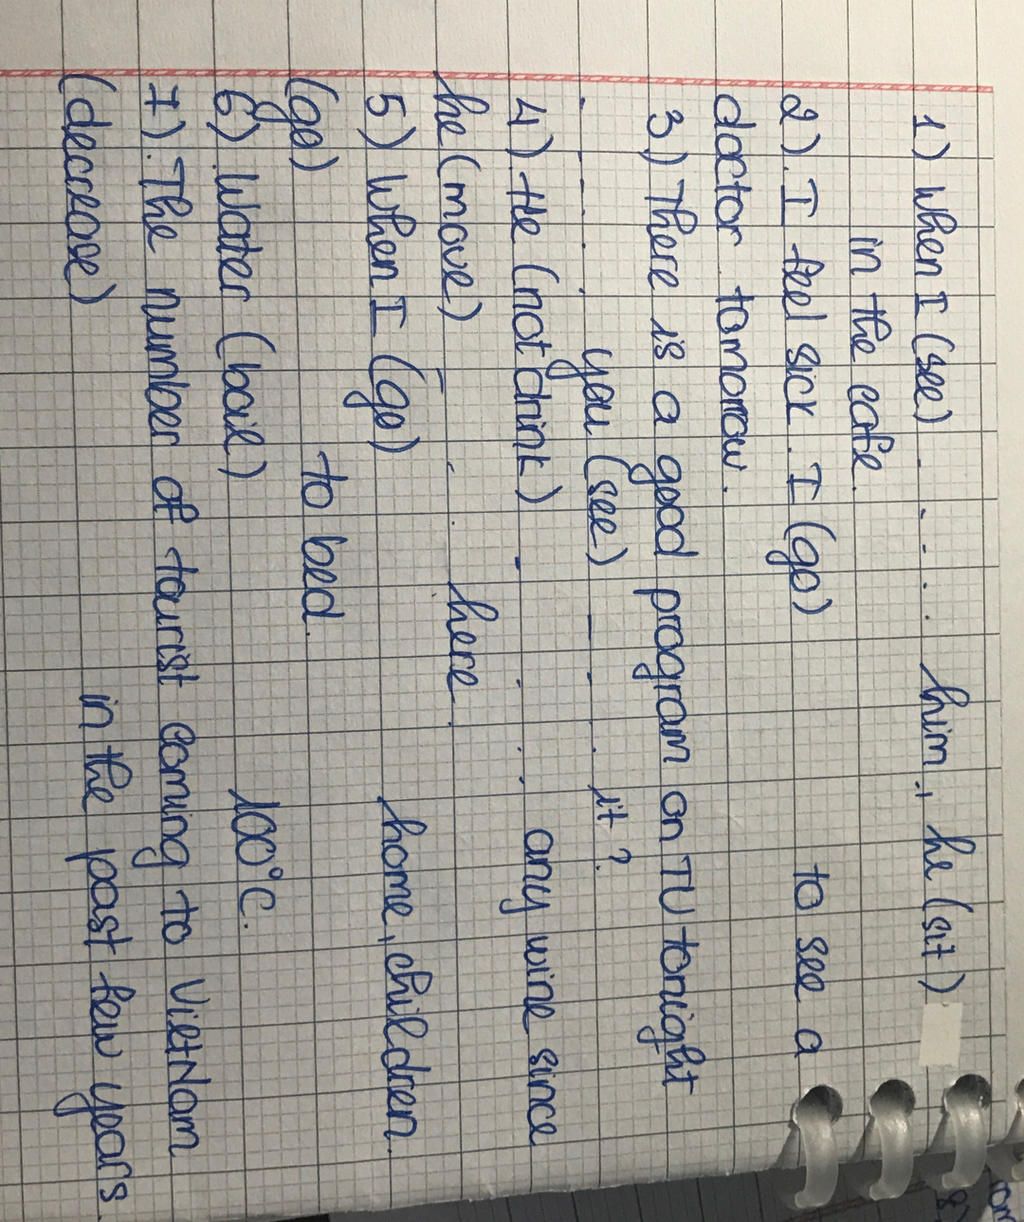 1) When I (see) ........ him, he (sit)
in the cafe.
2) I feel sick. I (go) to see a
doctor tomorrow.
3) There is a good program on TV tonight
........ you (see) ........ it?
4) He (not drink) ........ any wine since
he (move) ........ here.
5) When I (go) home, children
(go) to bed.
6) Water (boil) 100°C.
7) The number of tourist coming to VietNam
(decrease) in the past few years